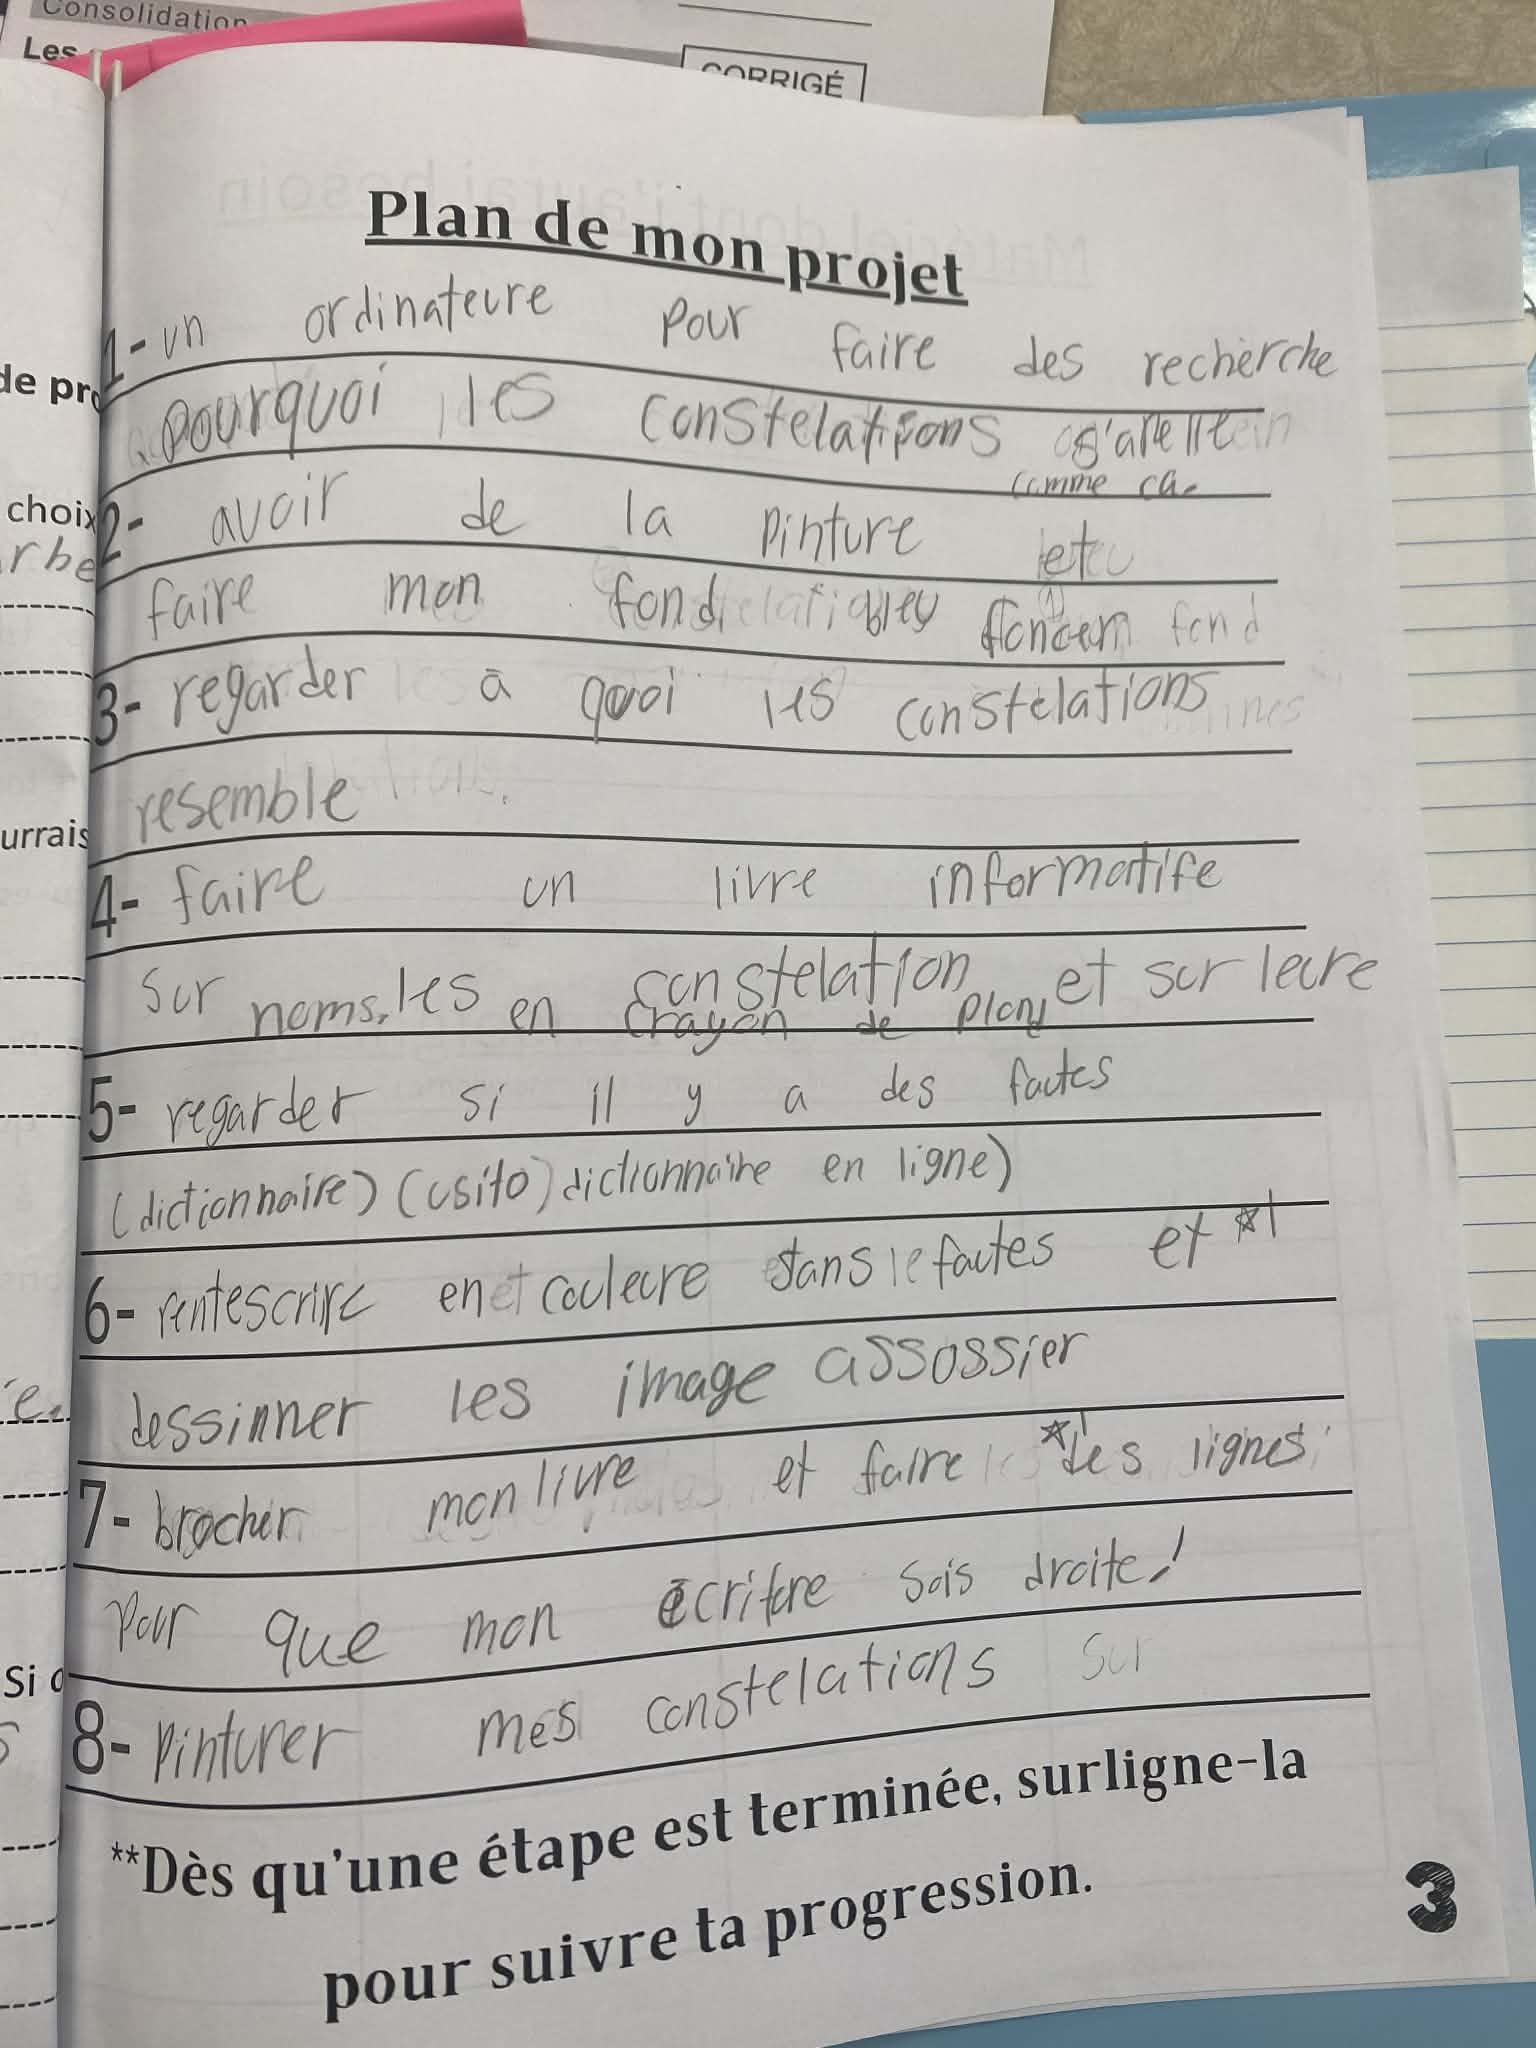 Consolidation
Les
CORRIGÉ
Plan de mon projet
1- un ordinateure pour faire des recherche
pourquoi les constelations s'apelle
comme ça.
2- avoir de la pinture et
faire mon fond bleu
3- regarder à quoi les constelations
resemble
4- faire un livre informatife
sur les constelation et sur leure
noms. en crayon de plond
5- regarder si il y a des fautes
(dictionnaire) (usito) dictionnaire en ligne)
6- en couleure sans fautes et *1
dessinner les image assossier
7- brocher mon livre et faire *1 des lignes
pour que mon écriture sois droite!
8- pinturer mes constelations sur
**Dès qu'une étape est terminée, surligne-la
pour suivre ta progression.
3
de pro
choix
rbe
urrais
e.
Si
s